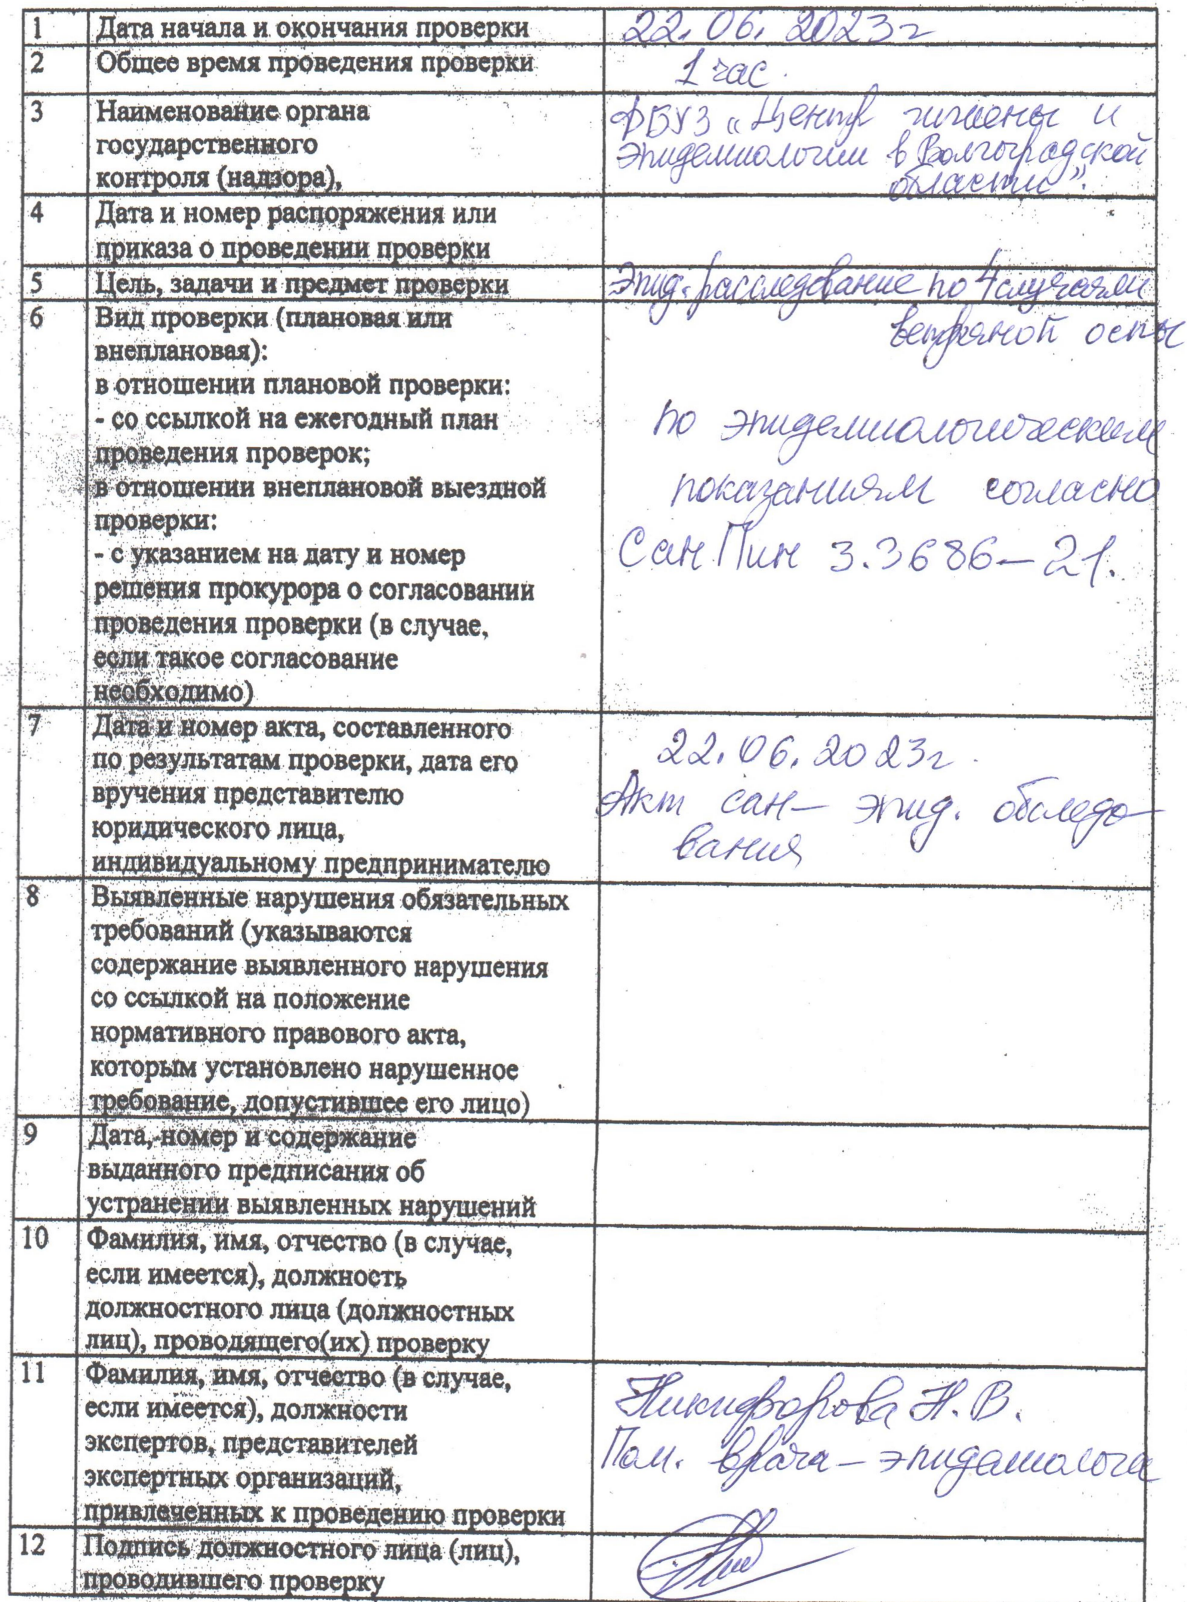 1 Дата начала и окончания проверки 22.06.2023г
2 Общее время проведения проверки 1 час.
3 Наименование органа
государственного
контроля (надзора),
ФБУЗ „Центр гигиены и
эпидемиологии в Волгоградской
области".
4 Дата и номер распоряжения или
приказа о проведении проверки
5 Цель, задачи и предмет проверки Эпид. расследование по 4 случаям
ветряной оспы
6 Вид проверки (плановая или
внеплановая):
в отношении плановой проверки:
- со ссылкой на ежегодный план
проведения проверок;
в отношении внеплановой выездной
проверки:
- с указанием на дату и номер
решения прокурора о согласовании
проведения проверки (в случае,
если такое согласование
необходимо)
по эпидемиологическим
показаниям согласно
СанПин 3.3686-21.
7 Дата и номер акта, составленного
по результатам проверки, дата его
вручения представителю
юридического лица,
индивидуальному предпринимателю
22.06.2023г.
Акт сан- эпид. обследо-
вания
8 Выявленные нарушения обязательных
требований (указываются
содержание выявленного нарушения
со ссылкой на положение
нормативного правового акта,
которым установлено нарушенное
требование, допустившее его лицо)
9 Дата, номер и содержание
выданного предписания об
устранении выявленных нарушений
10 Фамилия, имя, отчество (в случае,
если имеется), должность
должностного лица (должностных
лиц), проводящего(их) проверку
11 Фамилия, имя, отчество (в случае,
если имеется), должности
экспертов, представителей
экспертных организаций,
привлеченных к проведению проверки
Никифорова Н.В.
Пом. врача-эпидемиолога
12 Подпись должностного лица (лиц),
проводившего проверку